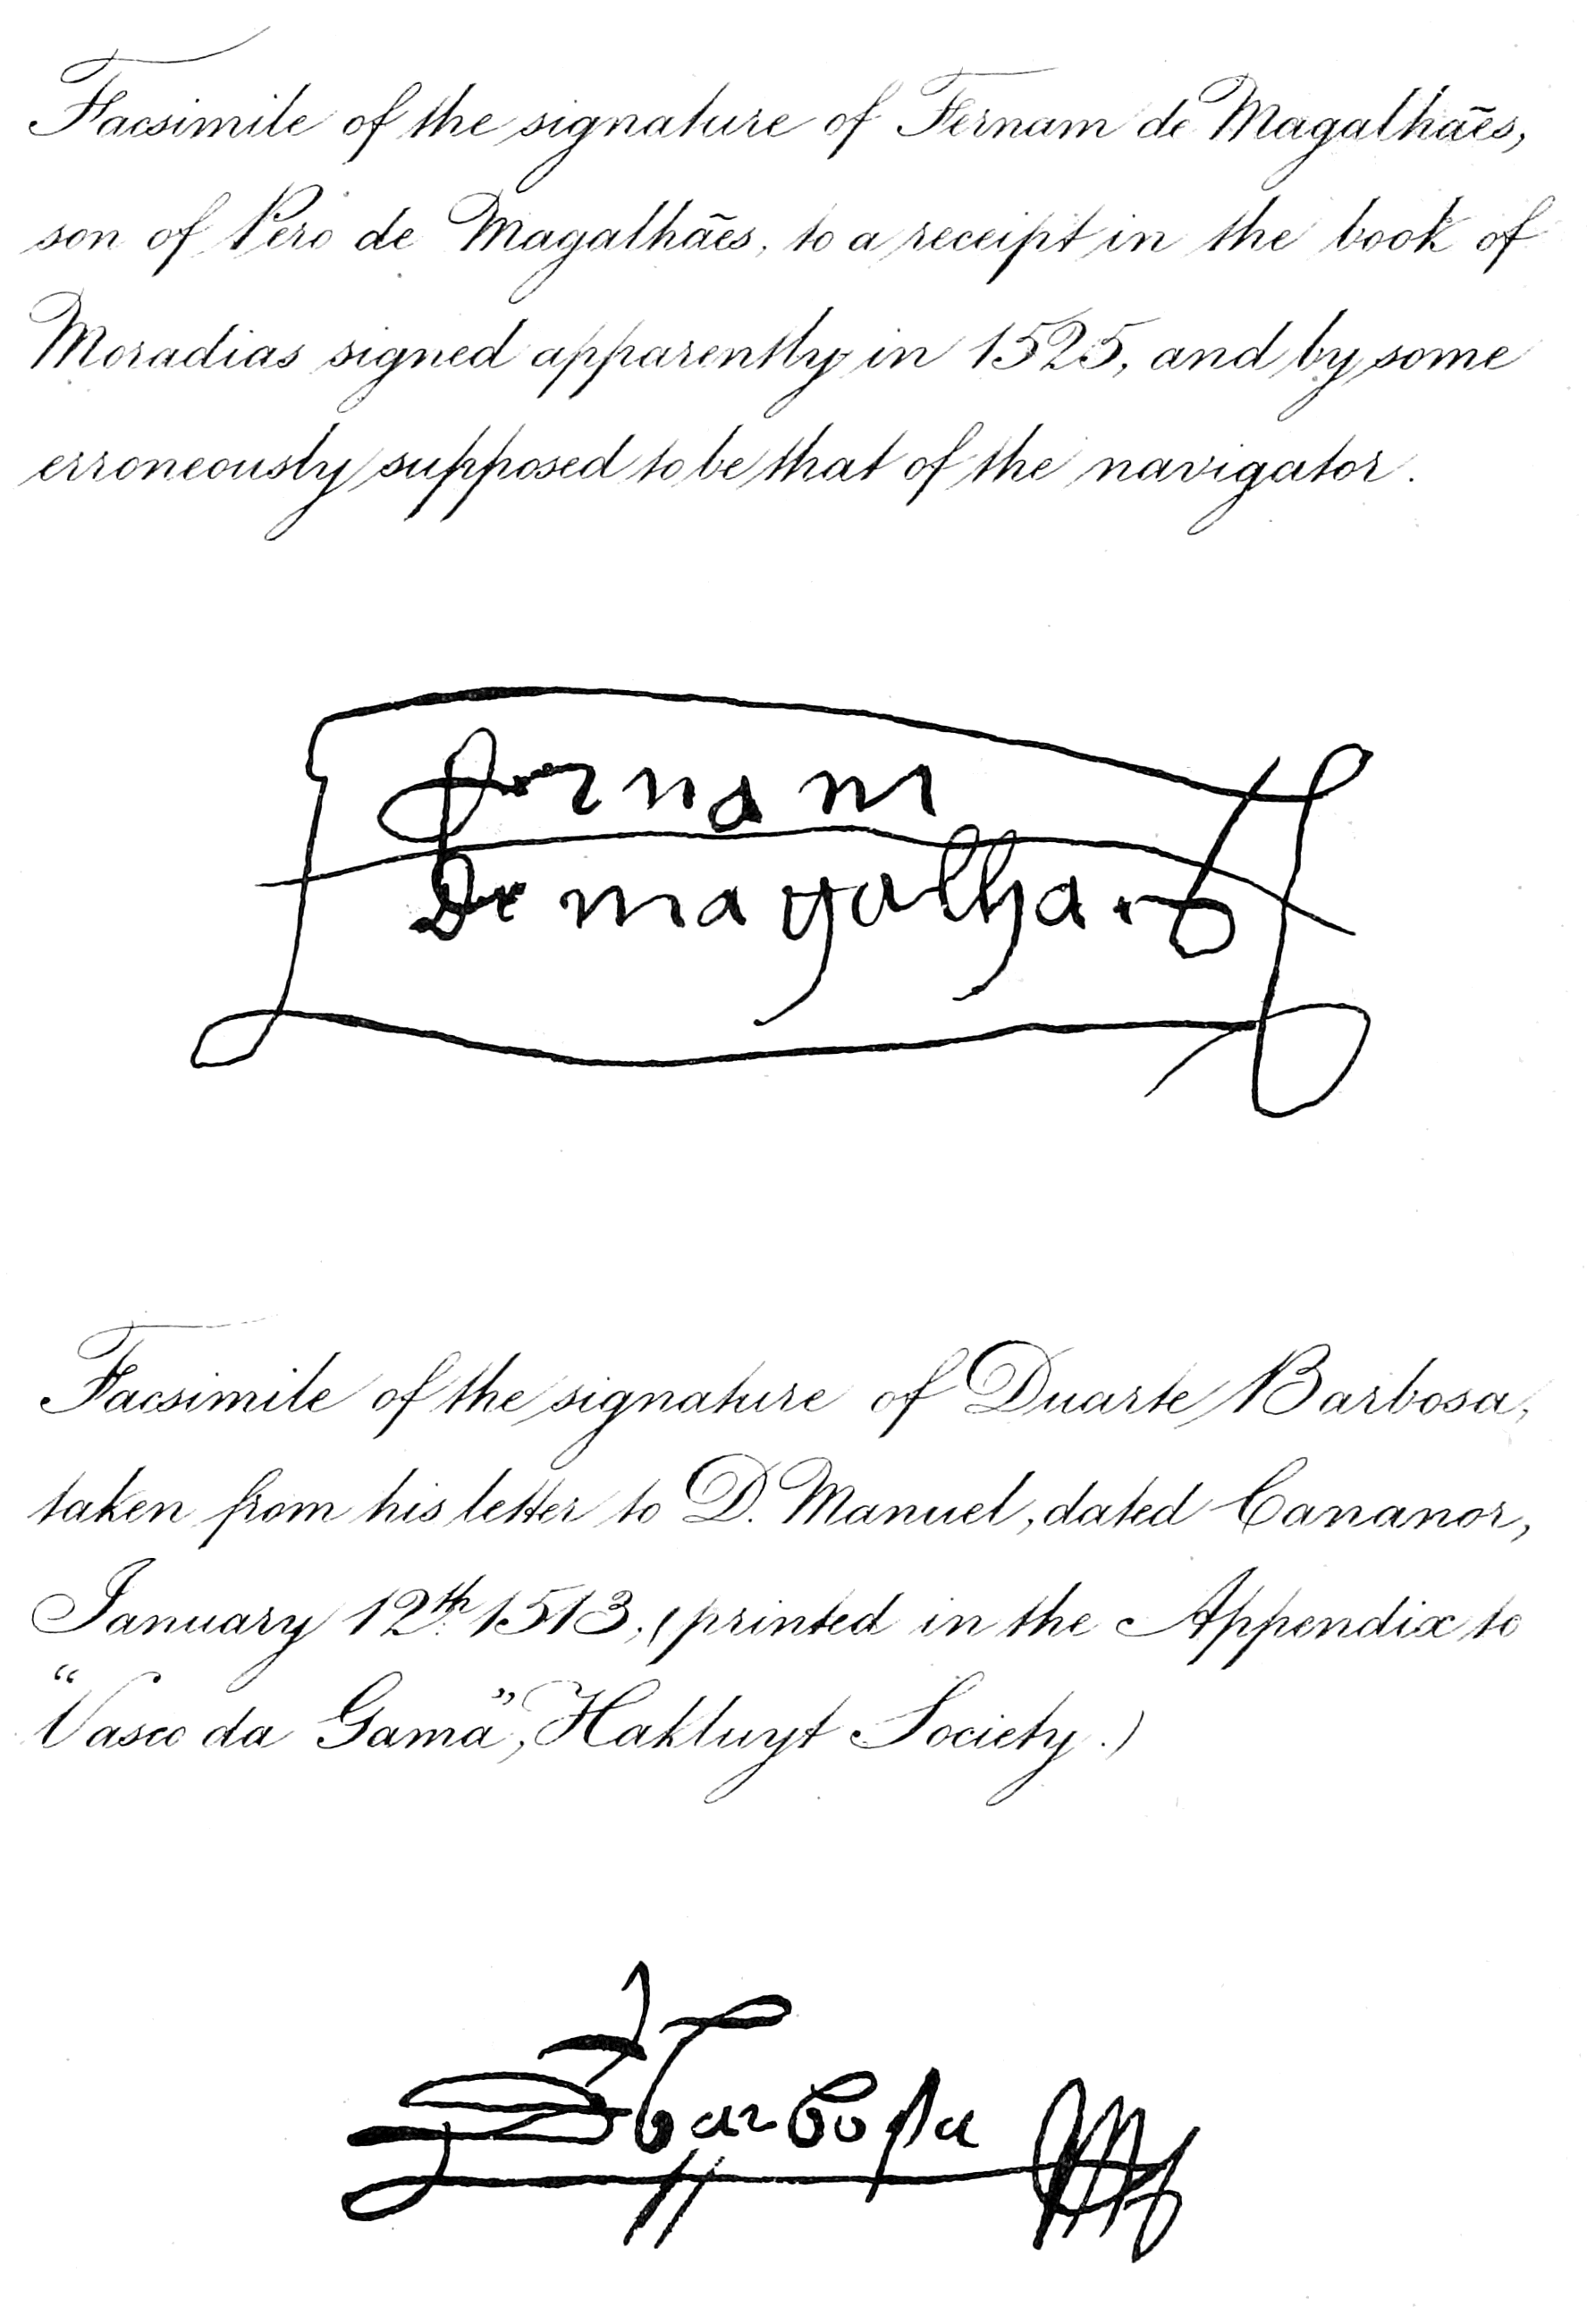 Facsimile of the signature of Fernam de Magalhães,
son of Pero de Magalhães, to a receipt in the book of
Moradias signed apparently in 1525, and by some
erroneously supposed to be that of the navigator.
fernam
De magalhaes
Facsimile of the signature of Duarte Barbosa,
taken from his letter to D. Manuel, dated Cananor,
January 12th 1513, (printed in the Appendix to
"Vasco da Gama", Hakluyt Society.)
barbosa